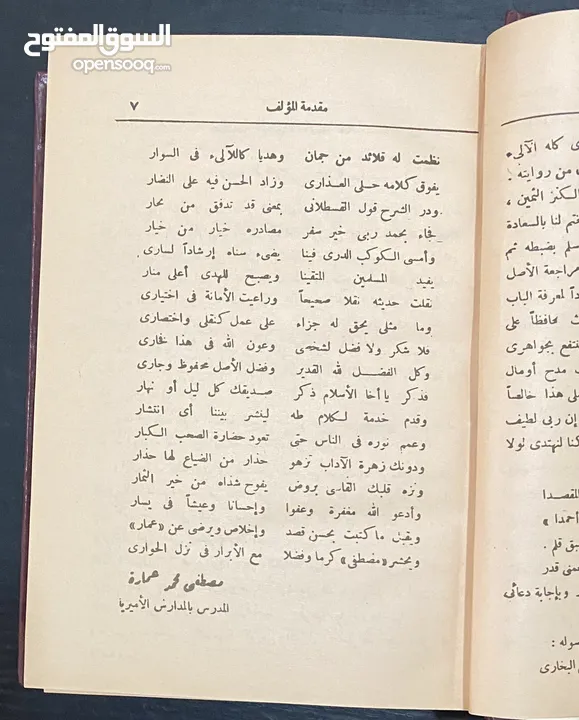 السوق المفتوح
opensooq.com
مقدمة المؤلف ٧
نظمت له قلائد من جمان وهديا كاللآلىء فى السوار
يفوق كلامه حلى العذارى وزاد الحسن فيه على النضار
ودر الشرح قول القسطلانى بمعنى قد تدفق من محار
فجاء بحمد ربى خير سفر مصادره خيار من خيار
وأمسى الكوكب الدرى فينا يضىء سناه إرشاداً لسارى
يفيد المسلمين المتقينا ويصبح للهدى أعلى منار
نقلت حديثه نقلا صحيحاً وراعيت الأمانة فى اختيارى
وما مثلى يحق له جزاء على عمل كنقلى واختصارى
فلا شكر ولا فضل لشخصى وعون الله فى هذا فخارى
وكل الفضل لله القدير وفضل الأصل محفوظ وجارى
فذكر يا أخا الأسلام ذكر صديقك كل ليل أو نهار
وقدم خدمة لكلام طه لينشر بيننا أى انتشار
وعمم نوره فى الناس حتى تعود حضارة الصحب الكبار
ودونك زهرة الآداب تزهو حذار من الضياع لها حذار
ونزه قلبك القاسى بروض يفوح شذاه من خير الثمار
وأدعو الله مغفرة وعفوا وإحسانا وعيشاً فى يسار
ويقبل ما كتبت بحسن قصد وإخلاص ويرضى عن «عمار»
ويحشر «مصطفى» كرما وفضلا مع الأبرار فى نزل الحوارى
مصطفى محمد عمارة
المدرس بالمدارس الأميرية
ى كله الآلىء
من روايته
الكنز الثمين ،
تم لنا بالسعادة
سلم بضبطه ثم
راجعة الأصل
داً لمعرفة الباب
ث محافظاً على
تفع بجواهرى
مدح أومال
لى هذا خالصاً
إن ربى لطيف
كنا لنهتدى لولا
المقصدا
أحمدا »
بق قلم .
عنى قدر
ر وبإجابة دعائى
سوله :
البخارى